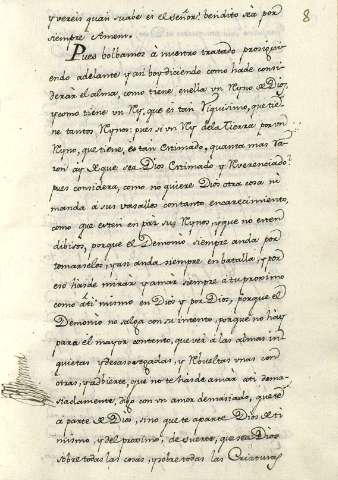 8
y vereis quan suabe es el señor: bendito sea por
siempre Amen.
Pues bolbamos à nuestro tratado prosigui-
endo adelante y asi boy diciendo como hàde consi-
derar el alma, como tiene en ella un Ryno de Dios,
y como tiene un Ry, que es tan Riquisimo, que tie-
ne tantos Rynos: pues si un Ry de la Tierra por un
Ryno, que tiene, es tan Estimado, quanta mas Ra-
zon ay de que sea Dios Estimado y Reverenciado?
pues considera, como no quiere Dios otra cosa ni
manda à sus vasallos con tanto encarecimiento,
como que esten en paz sus Rynos, y que no esten
dibisos, porque el Demonio siempre anda por
tomarselos, y asi anda siempre en batalla y por
eso hàs de miràr y amàr siempre à tu proximo
como à ti mismo en Dios y por Dios, porque el
Demonio no salga con su intento, porque no hày
para èl mayor contento, que ver à las almas in-
quietas y desasosegadas, y Rebueltas unas con
otras, y adbierte, que no te hàs de amàr à ti dema-
siadamente, digo con un amor demasiado, que te
aparte de Dios, sino que te aparte Dios de ti
mismo, y del proximo, de suerte, que sea Dios
sobre todas las cosas, y sobre todas las Criaturas